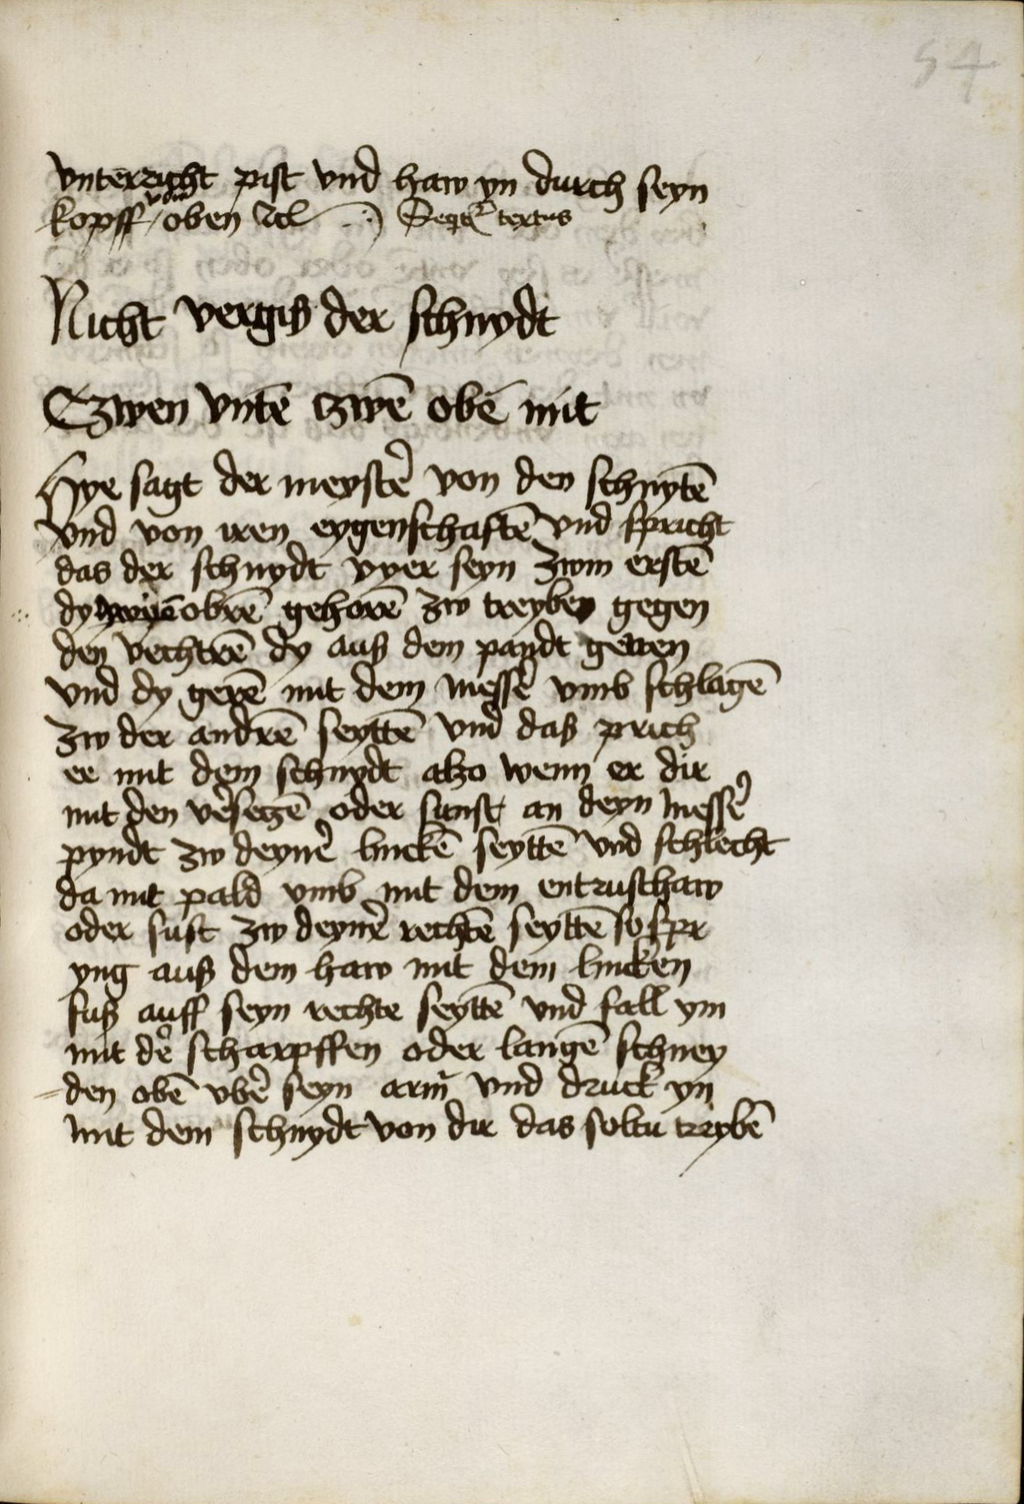 54
vnterricht pist vnd haw yn durch seyn
kopff von oben Rcl Seqr̃ textus
Nicht vergiß der schnydt
Czwen vntē czwē obē mit
Hye sagt der meystẽ von den schnytē
vnd von iren eygenschaftē vnd spricht
das der schnydt vyer seyn zwm erstē
dy zwyē obrē gehorē zw treyben gegen
den vechtrē dy auß dem pandt geren
vnd dy gerē mit dem messẽ vmb schlagē
zw der andrē seyttē vnd daß prich
er mit dem schnydt alzo wenn er dir
mit den vẽsetzē oder sunst an deyn messẽ
pyndt zw deynẽ linckē seyttē vnd schlecht
da mit pald vmb mit dem entrusthaw
oder sust zw deynẽ rechtē seyttē so spr
yng auß dem haw mit dem lincken
fuß auff seyn rechte seyttē vnd fall ym
mit dẽ scharpffen oder langē schney
den obē vbẽ seyn arm̃ vnd druck yn
mit dem schnydt von dir das soltu treybē